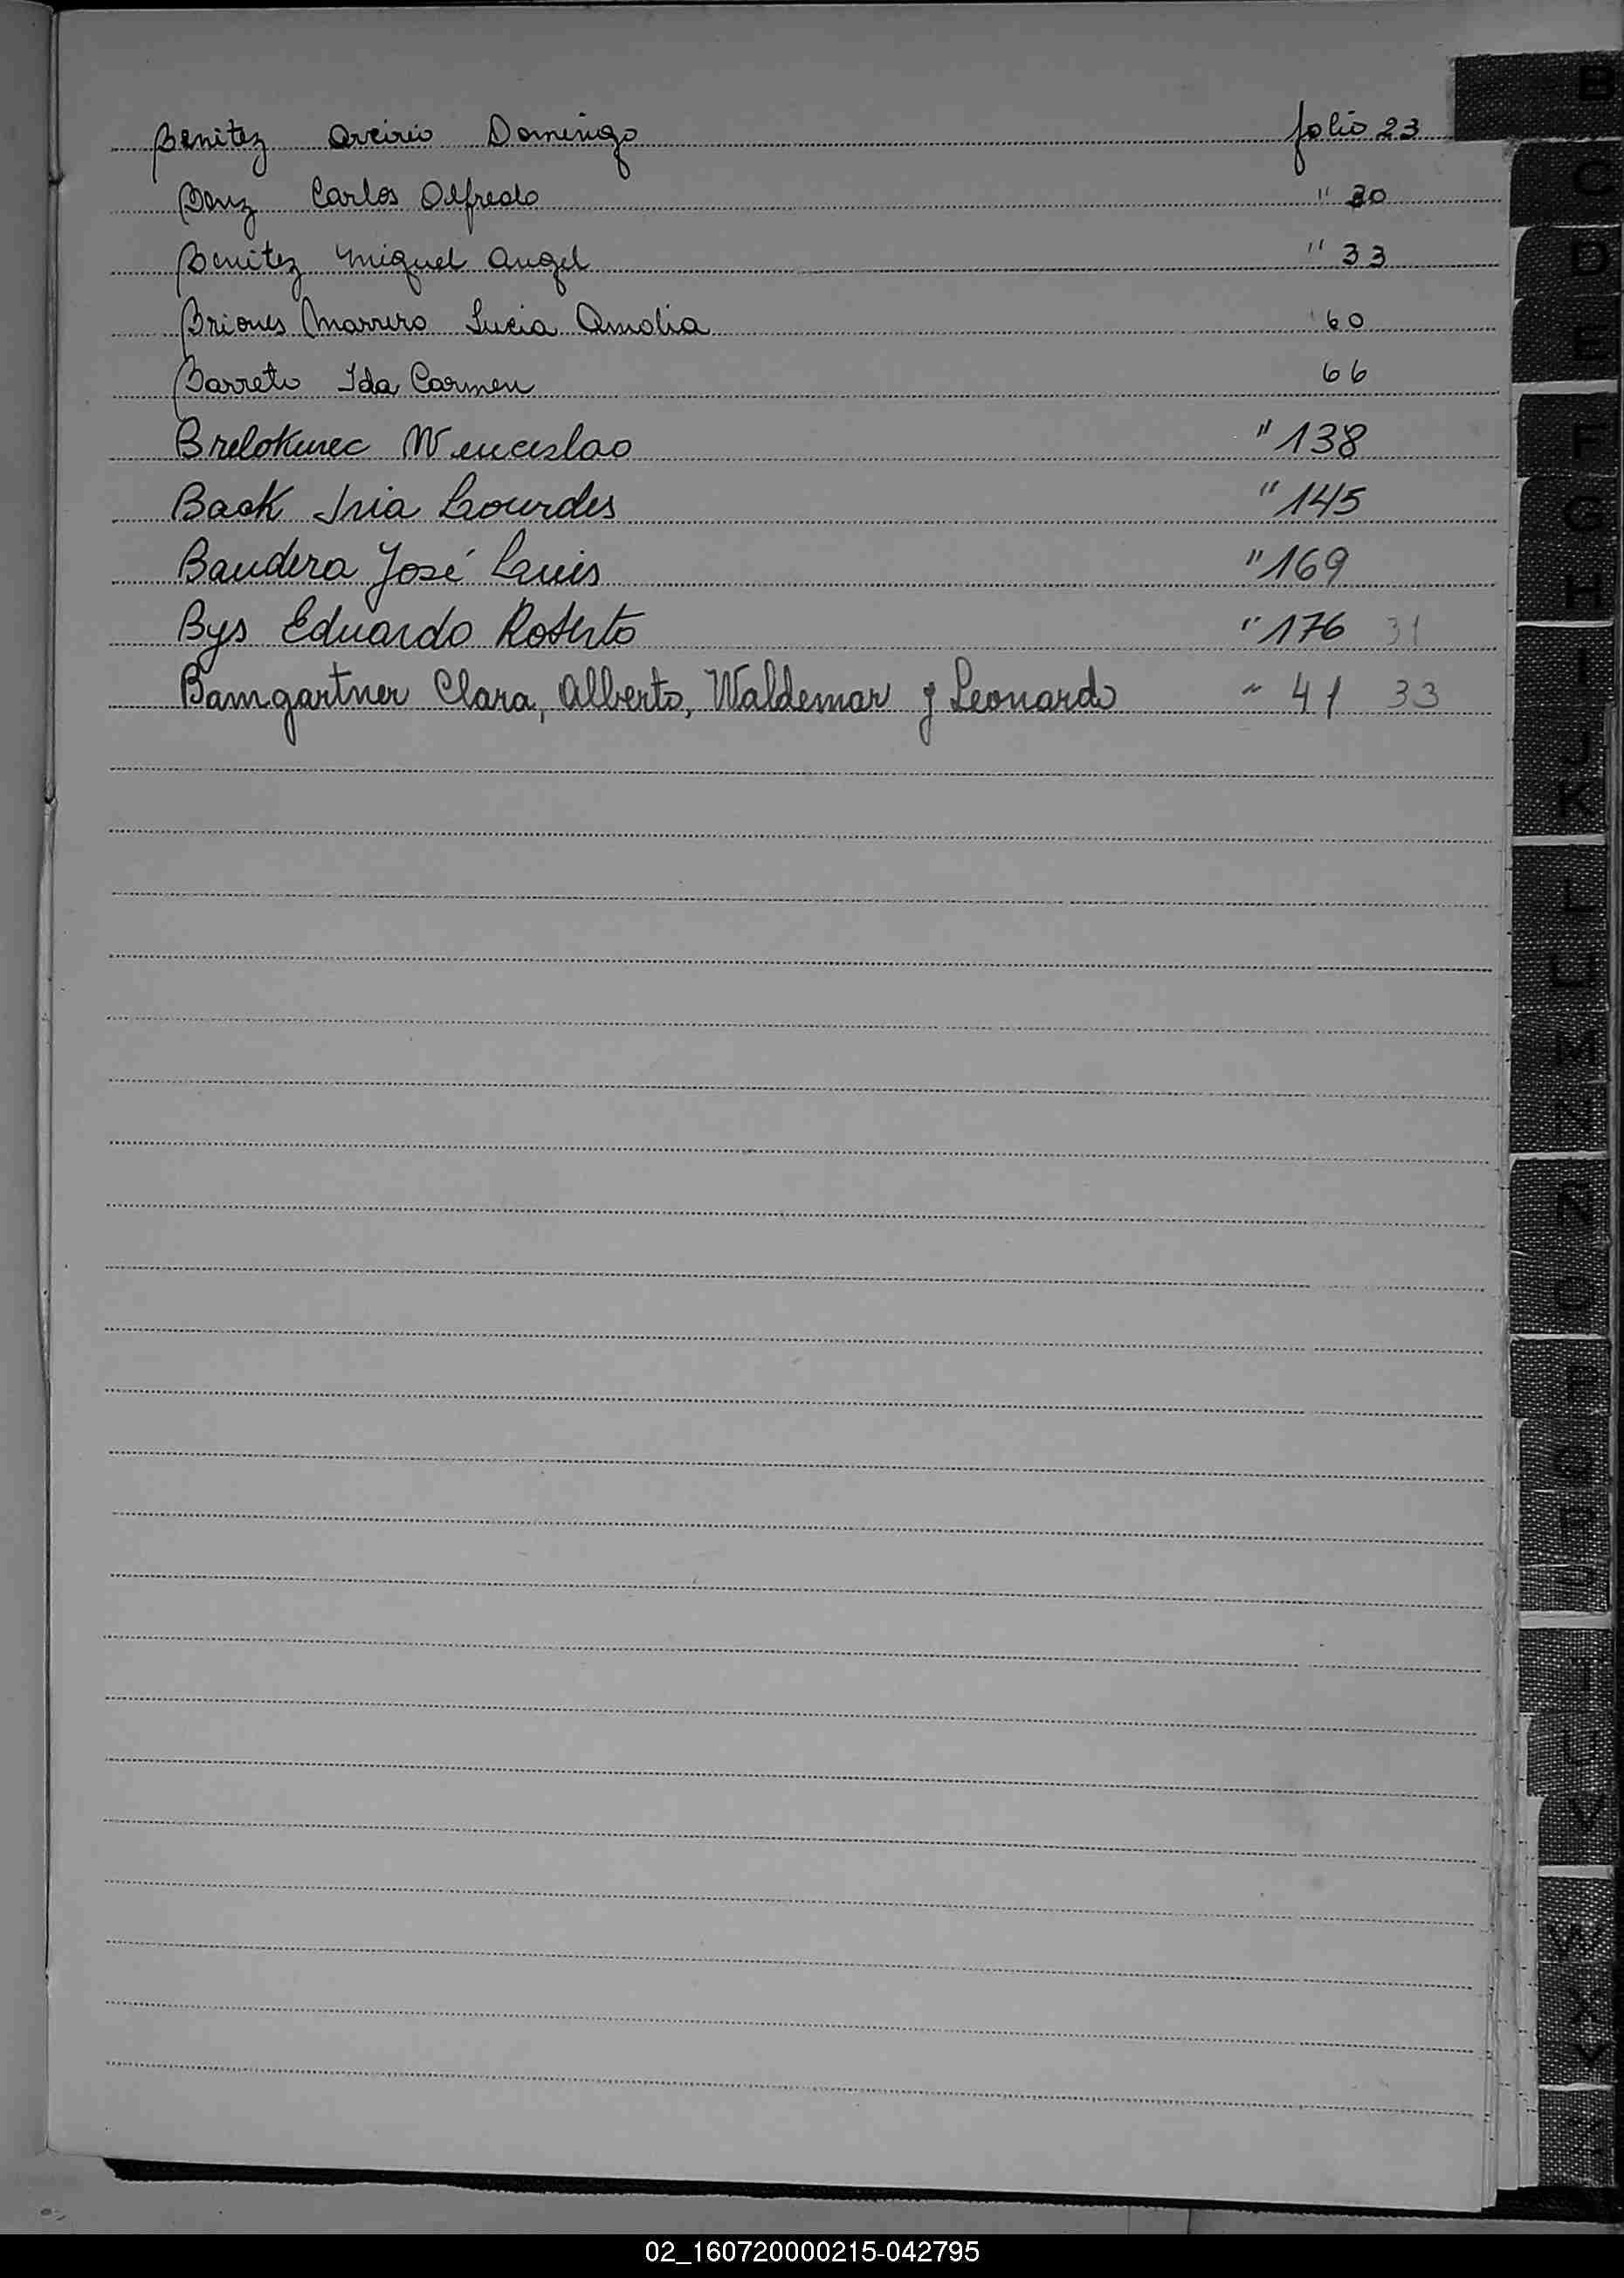 Benitez Arcirio Domingo folio 23
Benz Carlos Alfredo " 30
Benitez Miguel Angel " 33
Briones Marrero Lucia Amalia 60
Barreto Ida Carmen 66
Brelokurec Wenceslao " 138
Back Iria Lourdes " 145
Bandera José Luis " 169
Bys Eduardo Roberto " 176 31
Bamgartner Clara, Alberto, Waldemar y Leonardo ~ 41 33
B
C
D
E
F
G
H
I
J
K
L
LL
M
N
Ñ
O
P
Q
R
S
T
U
V
W
X
Y
02_160720000215-042795